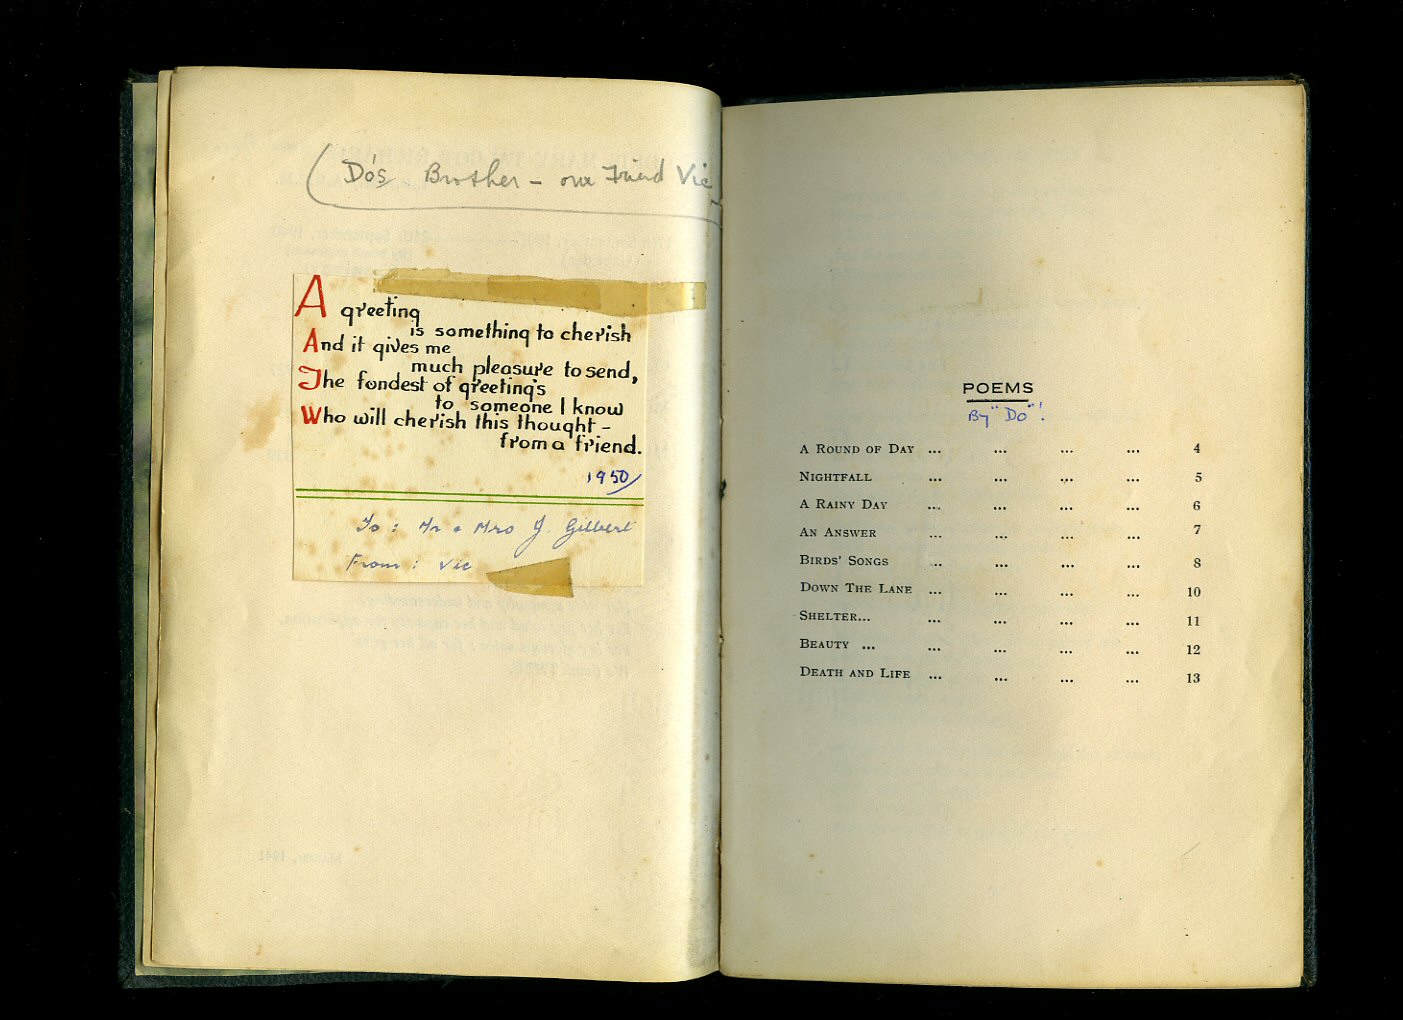 (Do's Brother - our Friend Vic
A greeting
is something to cherish
And it gives me
much pleasure to send,
The fondest of greeting's
to someone I know
Who will cherish this thought -
from a friend.
1950
To: Mr & Mrs J. Gilbert
From: Vic
POEMS
By "Do"!
A Round of Day ... ... ... ... 4
Nightfall ... ... ... ... 5
A Rainy Day ... ... ... ... 6
An Answer ... ... ... ... 7
Birds' Songs ... ... ... ... 8
Down The Lane ... ... ... ... 10
Shelter... ... ... ... ... 11
Beauty ... ... ... ... ... 12
Death and Life ... ... ... ... 13